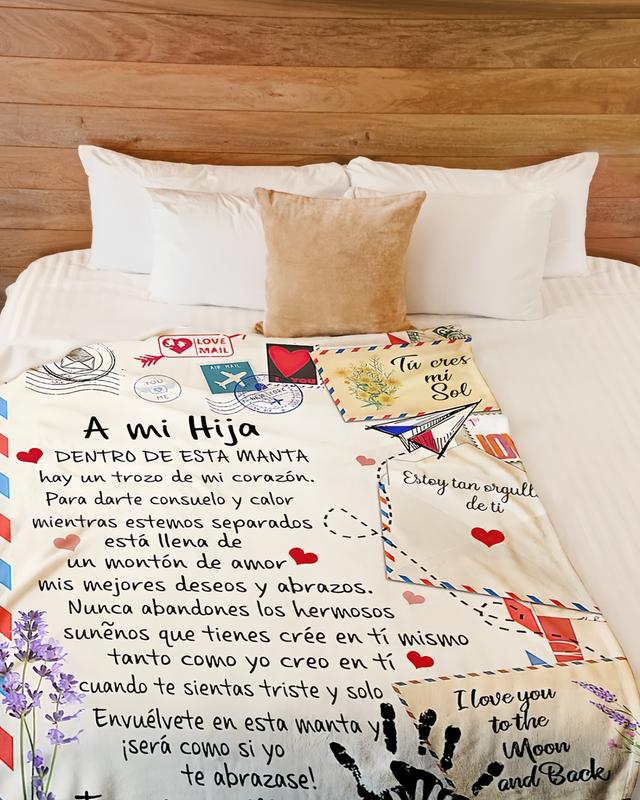 LOVE
MAIL
AIR MAIL
YOU
ME
Tú eres
mi
Sol
A mi Hija
DENTRO DE ESTA MANTA
hay un trozo de mi corazón.
Para darte consuelo y calor
mientras estemos separados
está llena de
un montón de amor
mis mejores deseos y abrazos.
Nunca abandones los hermosos
suneños que tienes crée en tí mismo
tanto como yo creo en tí
cuando te sientas triste y solo
Envuélvete en esta manta y
¡será como si yo
te abrazase!
Estoy tan orgull
de ti
I love you
to the
Moon
and Back